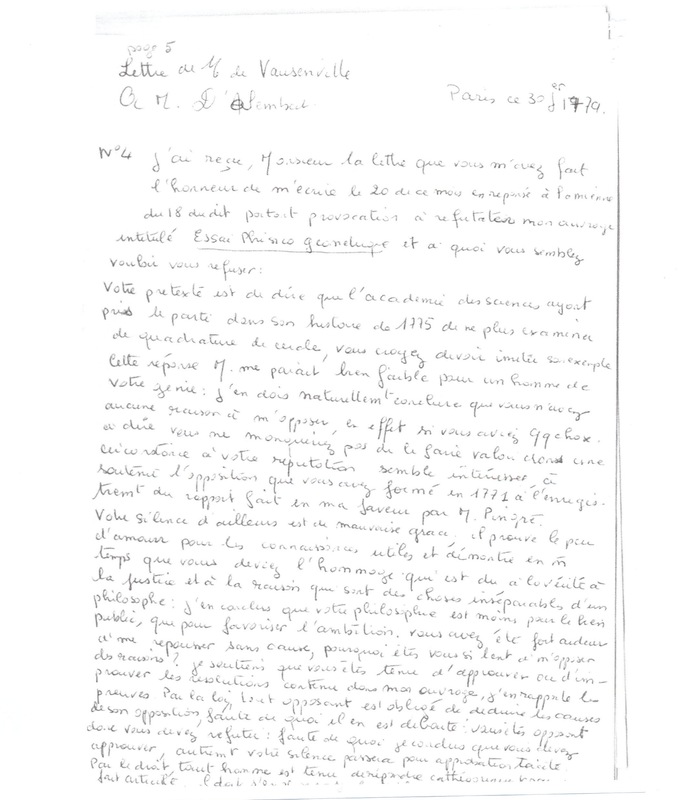 page 5
Lettre de M de Vausenville
A M. D'Alembert.
Paris ce 30 1779.
N°4 j'ai reçue, Monsieur la lettre que vous m'avez fait
l'honneur de m'écrire le 20 de ce mois en reponse à la mienne
du 18 dudit portant provocation à refutater mon ouvrage
intitulé Essai Phisico geometrique et à quoi vous semblez
vouloir vous refuser:
Votre pretexte est de dire que l'académie des sciences ayant
pris le parti dans son histoire de 1775 de ne plus examiner
de quadrature de cercle, vous croyez devoir imiter son exemple
Cette réponse M. me parait bien faible pour un homme de
votre genie: j'en dois naturellemt conclure que vous n'avez
aucune raison à m'opposer, en effet si vous aviez qqchose
à dire vous ne manqueriez pas de le faire valoir dans une
circonstance où votre reputation semble intéressée, à
soutenir l'opposition que vous avez formé en 1771 à l'enregis-
tremt du rapport fait en ma faveur par M. Pingré.
Votre silence d'ailleurs est de mauvaise grace, il prouve le peu
d'amour pour les connaissances utiles et démontre en m
temps que vous deviez l'hommage qui est du à la vérité à
la justice et à la raison qui sont des choses inséparables d'un
philosophe: j'en conclus que votre philosophie est moins pour le bien
public, que pour favoriser l'ambition. vous avez été fort ardeur
à me repousser sans cause, pourquoi êtes vous si lent à m'opposer
des raisons? je soutiens que vous êtes tenu d'approuver ou d'im-
prouver les résolutions contenue dans mon ouvrage, j'en rappelle les
preuves Par la loi, tout opposant est obligé de deduire les causes
de son opposition, faute de quoi il en est debouté: vous êtes opposant
donc vous devez refuter: faute de quoi je conclus que vous devez
approuver, autremt votre silence passera pour approbation tacite
Par le droit, tout homme est tenu de répondre
fait articulé